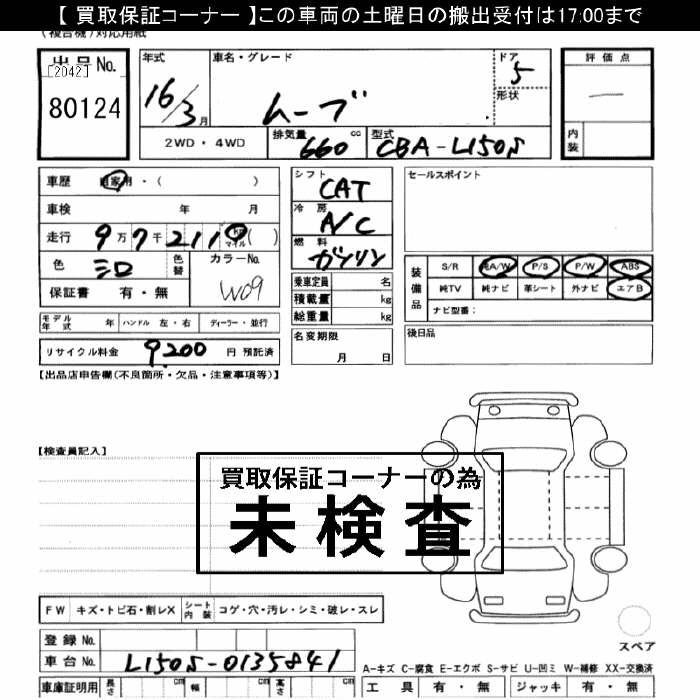 【 買取保証コーナー 】この車両の土曜日の搬出受付は17:00まで
(複合機)対応用紙
出品No.
[2042]
80124
年式
16/3月
車名・グレード
ムーブ
ドア
5
形状
2WD・4WD
排気量
660 cc
型式
CBA-L150S
評価点
一
内装
車歴 自家用・( )
車検 年 月
走行 9万7千211 0 マイル( )
色 シロ 色替 カラーNo.
W09
保証書 有・無
シフト
CAT
冷房
A/C
燃料
ガソリン
乗車定員 名
積載量 kg
総重量 kg
セールスポイント
装備品 S/R 純A/W P/S P/W ABS
純TV 純ナビ 革シート 外ナビ エアB
ナビ型番:
モデル年式 年 ハンドル 左・右 ディーラー・並行
リサイクル料金 9,200 円 預託済
名変期限
月 日
後日品
【出品店申告欄(不良箇所・欠品・注意事項等)】
【検査員記入】
買取保証コーナーの為
未検査
FW キズ・トビ石・割レX シート内装 コゲ・穴・汚レ・シミ・破レ・スレ
登録No.
車台No. L150S-0135841
車庫証明用 長さ cm 幅 cm 高さ cm
スペア
A-キズ C-腐食 E-エクボ S-サビ U-凹ミ W-補修 XX-交換済
工具 有・無 ジャッキ 有・無